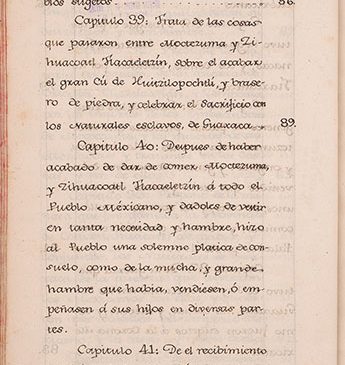 blos sugetos . . . . . . . . . . . . . 86.
Capitulo 39: Trata de las cosas
que pasaron entre Moctezuma, y Zi-
huacoatl Tlacaeletzin, sobre el acabar
el gran Cú de Huitzilopochtli, y brase-
ro de piedra, y celebrar el Sacrificio con
los Naturales esclavos, de Guaxaca . . 89.
Capitulo 40: Despues de haber
acabado de dar de comer Moctezuma,
y Zihuacoatl Tlacaeletzin á todo el
Pueblo Mexicano, y dadoles de vestir
en tanta necesidad y hambre, hizo
al Pueblo una solemne platica de con-
suelo, como de la mucha, y grande
hambre que habia, vendiesen, ó em-
peñasen á sus hijos en diversas par-
tes.
Capitulo 41: De el recibimiento